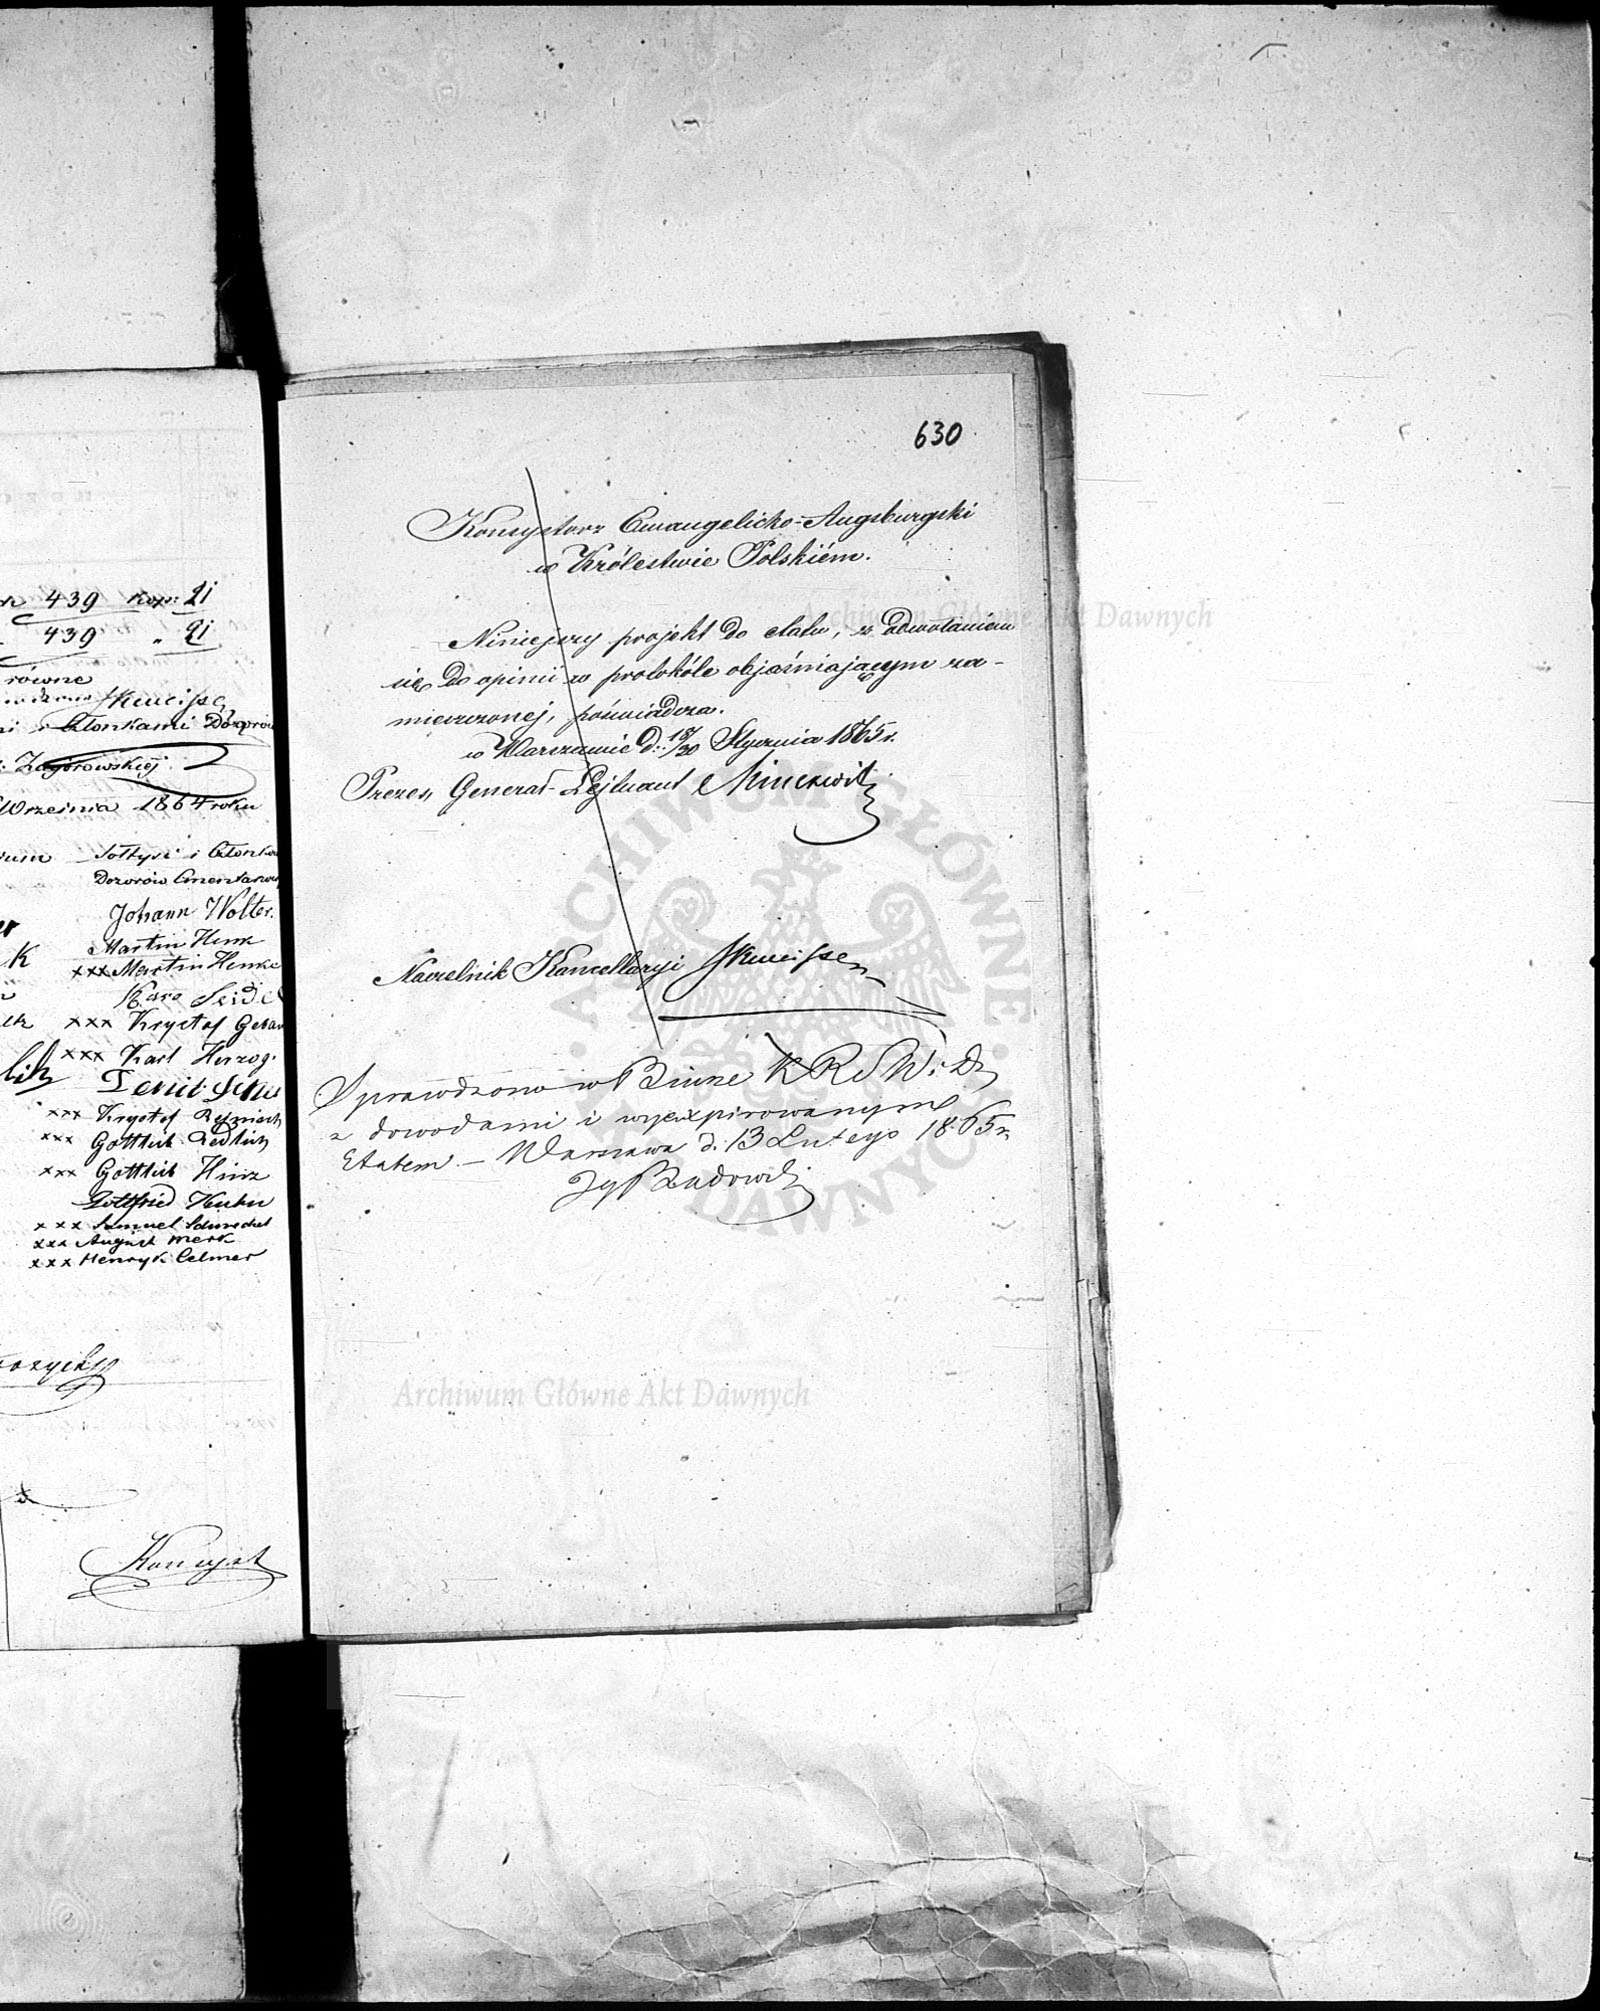 439 Kop: 21
439 " 21
równe
Członkami Dozorów
Zagórowskiej
Września 1864 roku
Sołtysi i Członkowie
Dozorów Cmentarnych
Johann Wolter.
K Martin Henk
xxx Martin Henke
Seidel
xxx Krysztof
xxx Karl Herzog.
xxx Krysztof
xxx Gottlieb Redlich
xxx Gottlieb Hinz
Gottfried
xxx Samuel
xxx August Merk
xxx Henryk Celmer
630
Konsystorz Ewangelicko-Augsburgski
w Królestwie Polskiém.
Niniejszy projekt do etatu, z odwołaniem
się do opinii w protokóle objaśniającym za-
mieszczonej, poświadcza.
w Warszawie d: 18/30 Stycznia 1865 r.
Prezes, Generał-Lejtnant Minckwitz
Naczelnik Kancellaryi
Sprawdzono w Biurze KRSW i D
z dowodami i wyexpirowanym
Etatem. – Warszawa d. 13 Lutego 1865 r.
Archiwum Główne Akt Dawnych
ARCHIWUM GŁÓWNE AKT DAWNYCH
Archiwum Główne Akt Dawnych